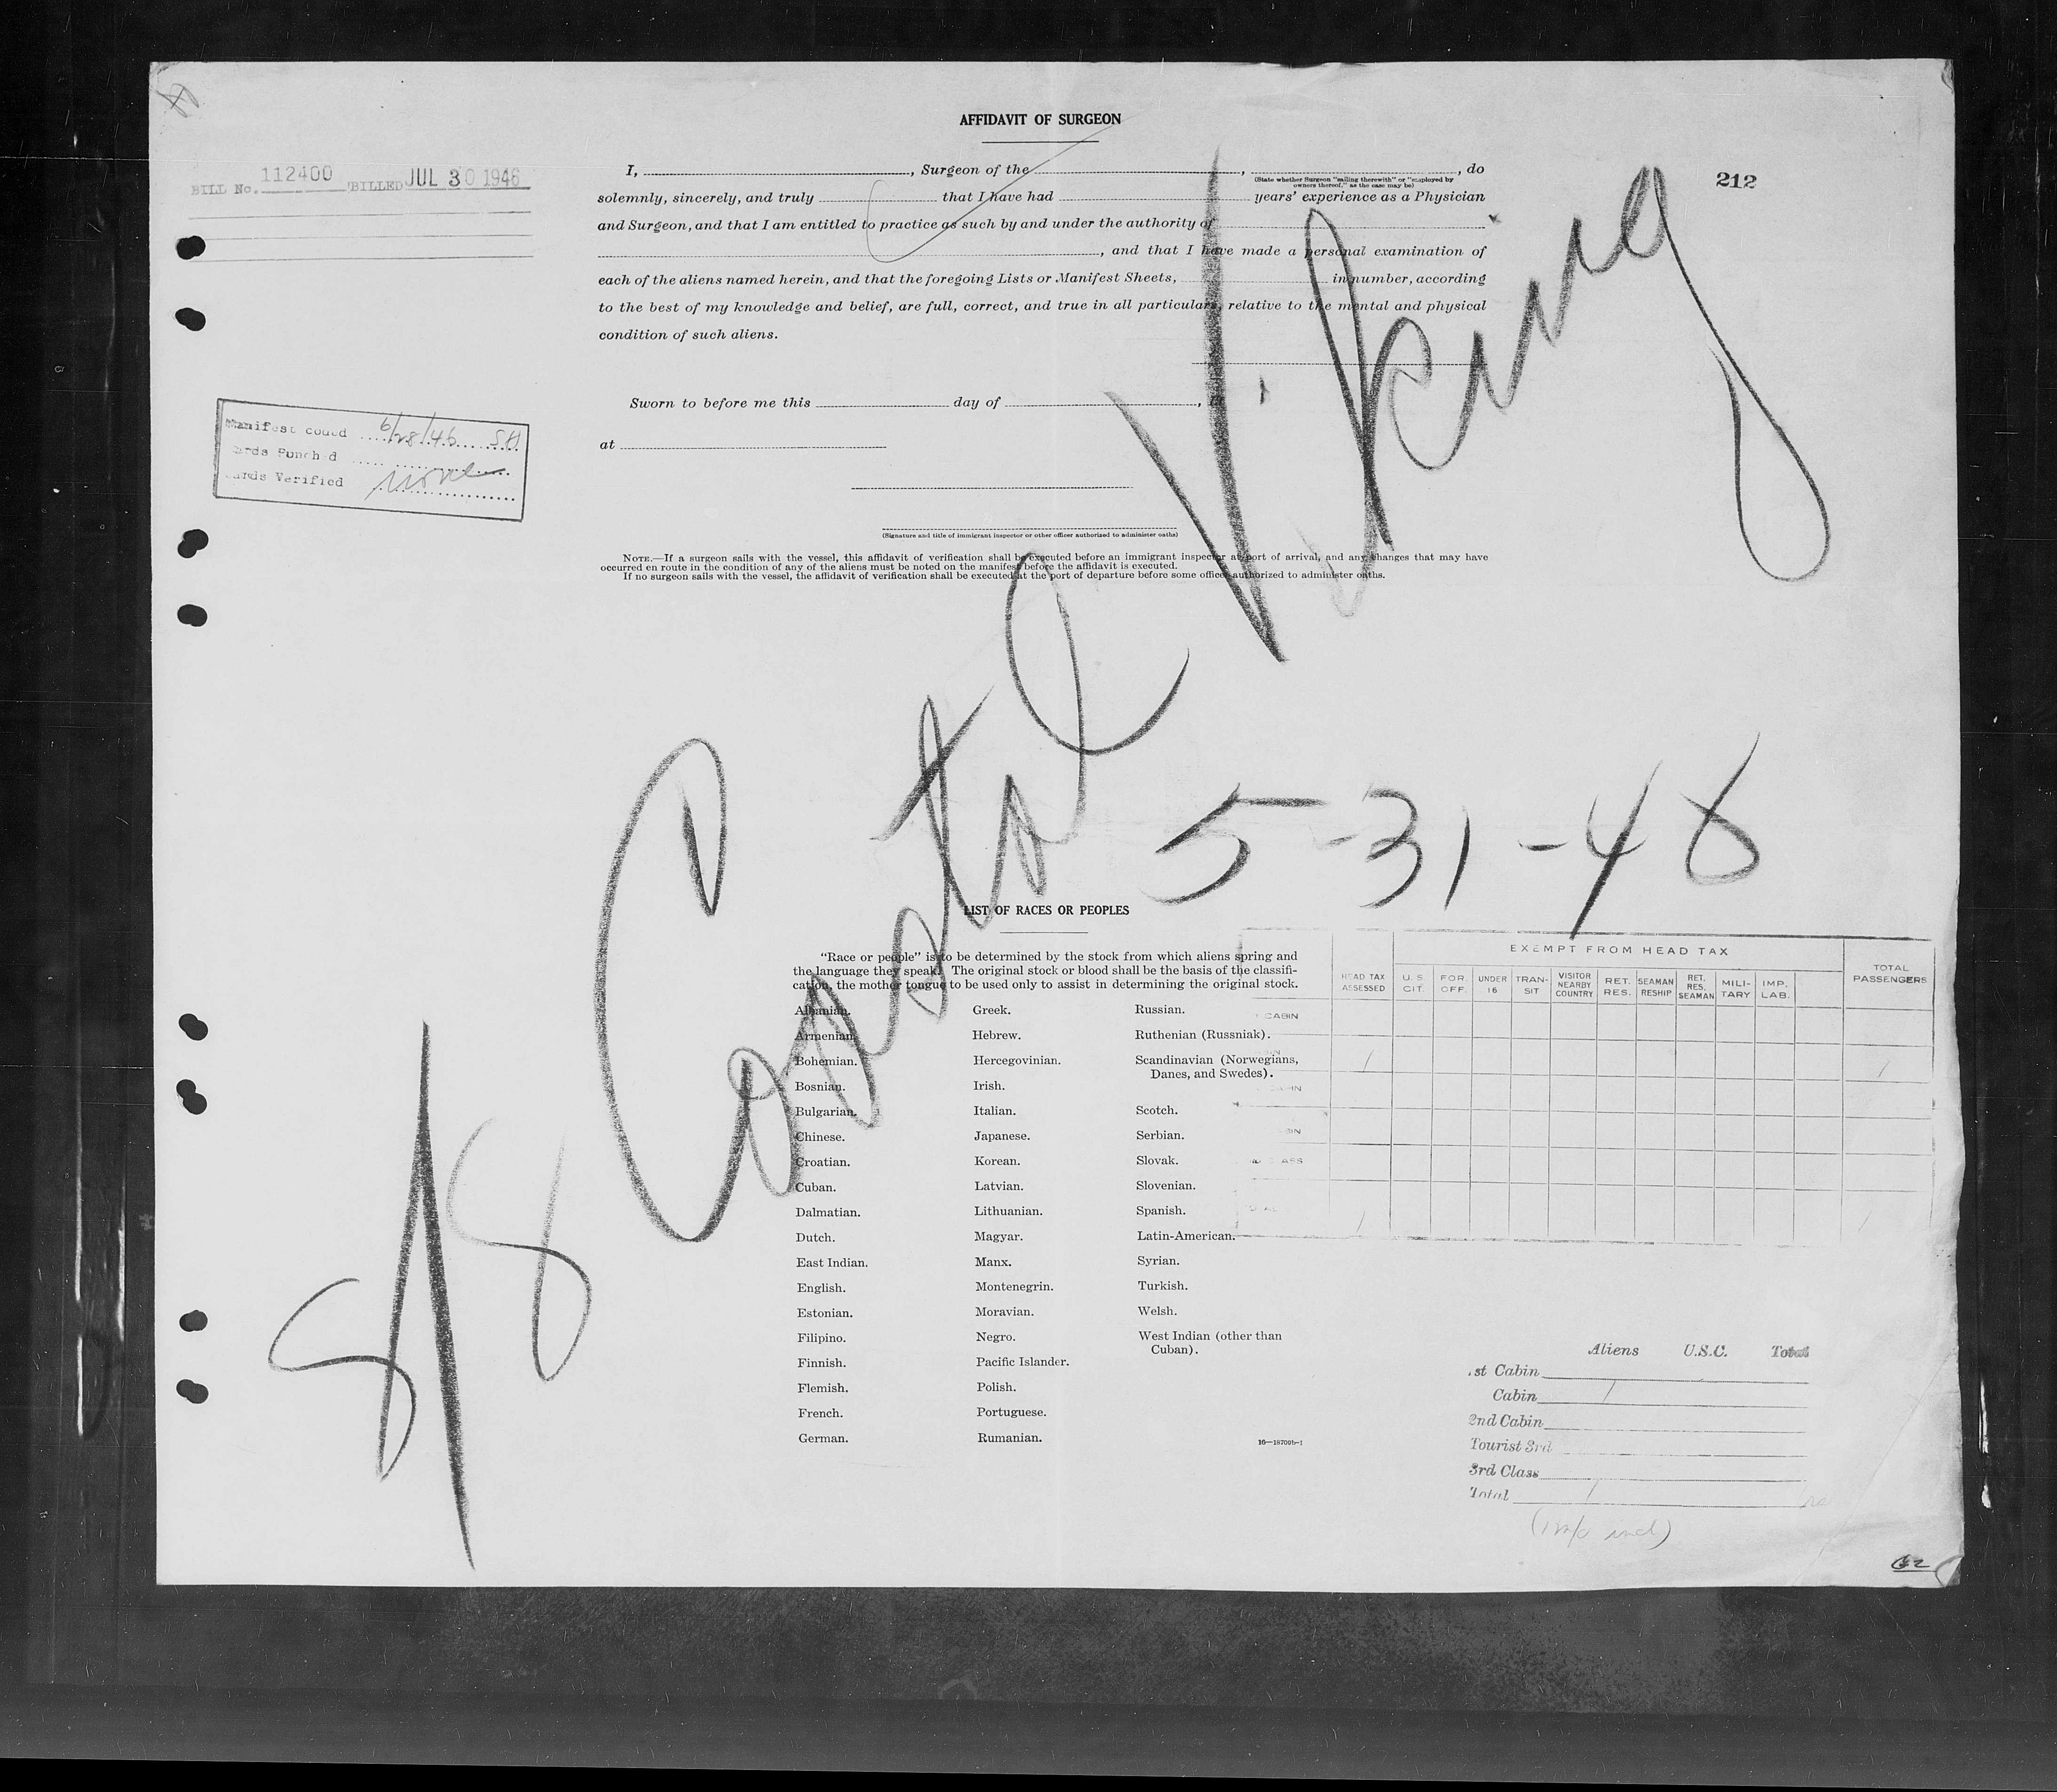 AFFIDAVIT OF SURGEON
BILL No. 112400 BILLED JUL 30 1946
212
I, , Surgeon of the , , do
(State whether Surgeon "sailing therewith" or "employed by
owners thereof," as the case may be)
solemnly, sincerely, and truly that I have had years' experience as a Physician
and Surgeon, and that I am entitled to practice as such by and under the authority of
, and that I have made a personal examination of
each of the aliens named herein, and that the foregoing Lists or Manifest Sheets, in number, according
to the best of my knowledge and belief, are full, correct, and true in all particulars, relative to the mental and physical
condition of such aliens.
Sworn to before me this day of ,
at
(Signature and title of immigrant inspector or other officer authorized to administer oaths)
NOTE.—If a surgeon sails with the vessel, this affidavit of verification shall be executed before an immigrant inspector at port of arrival, and any changes that may have
occurred en route in the condition of any of the aliens must be noted on the manifest before the affidavit is executed.
If no surgeon sails with the vessel, the affidavit of verification shall be executed at the port of departure before some officer authorized to administer oaths.
Manifest coded 6/28/46 SH
Cards Punched
Cards Verified none
S/S Coastal Viking
5-31-46
LIST OF RACES OR PEOPLES
"Race or people" is to be determined by the stock from which aliens spring and
the language they speak. The original stock or blood shall be the basis of the classifi-
cation, the mother tongue to be used only to assist in determining the original stock.
Albanian.
Armenian.
Bohemian.
Bosnian.
Bulgarian.
Chinese.
Croatian.
Cuban.
Dalmatian.
Dutch.
East Indian.
English.
Estonian.
Filipino.
Finnish.
Flemish.
French.
German.
Greek.
Hebrew.
Hercegovinian.
Irish.
Italian.
Japanese.
Korean.
Latvian.
Lithuanian.
Magyar.
Manx.
Montenegrin.
Moravian.
Negro.
Pacific Islander.
Polish.
Portuguese.
Rumanian.
Russian.
Ruthenian (Russniak).
Scandinavian (Norwegians,
Danes, and Swedes).
Scotch.
Serbian.
Slovak.
Slovenian.
Spanish.
Latin-American.
Syrian.
Turkish.
Welsh.
West Indian (other than
Cuban).
16—18700b-1
EXEMPT FROM HEAD TAX
HEAD TAX ASSESSED
U. S. CIT.
FOR. OFF.
UNDER 16
TRAN-SIT
VISITOR NEARBY COUNTRY
RET. RES.
SEAMAN RESHIP
RET. RES. SEAMAN
MILI-TARY
IMP. LAB.
TOTAL PASSENGERS
CABIN
1 1
1 1
Aliens U.S.C. Total
1st Cabin
Cabin 1
2nd Cabin
Tourist 3rd
3rd Class
Total 1